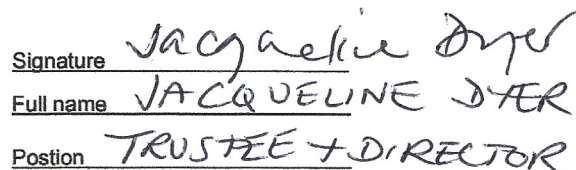 Signature Jacqueline Dyer
Full name JACQUELINE DYER
Postion TRUSTEE + DIRECTOR